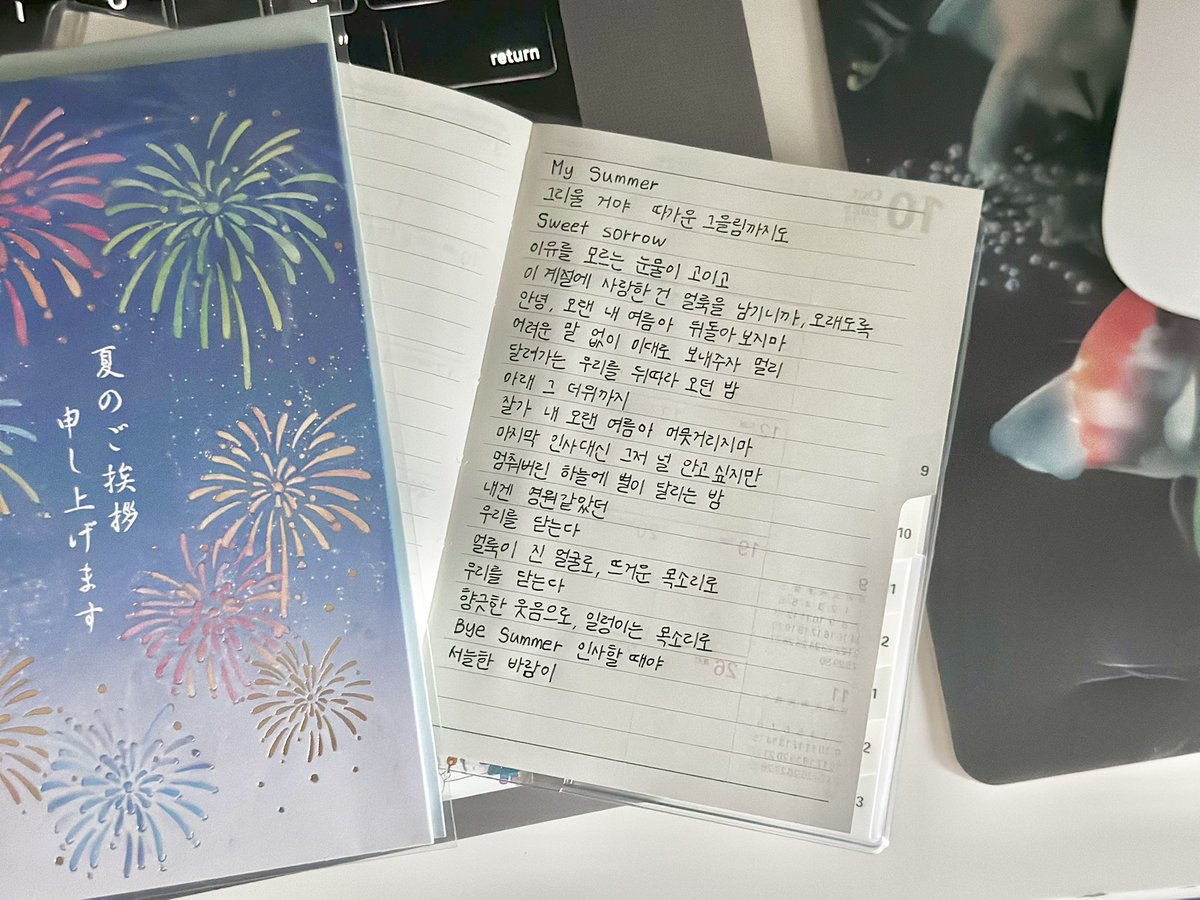 return
夏のご挨拶
申し上げます
My Summer
그리울 거야 따가운 그을림까지도
Sweet sorrow
이유를 모르는 눈물이 고이고
이 계절에 사랑한 건 얼룩을 남기니까, 오래도록
안녕, 오랜 내 여름아 뒤돌아보지마
어려운 말 없이 이대로 보내주자 멀리
달려가는 우리를 뒤따라 오던 밤
아래 그 더위까지
잘가 내 오랜 여름아 머뭇거리지마
마지막 인사대신 그저 널 안고싶지만
멈춰버린 하늘에 별이 달리는 밤
내겐 영원같았던
우리를 닫는다
얼룩이 진 얼굴로, 뜨거운 목소리로
우리를 닫는다
향긋한 웃음으로, 일렁이는 목소리로
Bye Summer 인사할 때야
서늘한 바람이
9
10
11
12
1
2
3